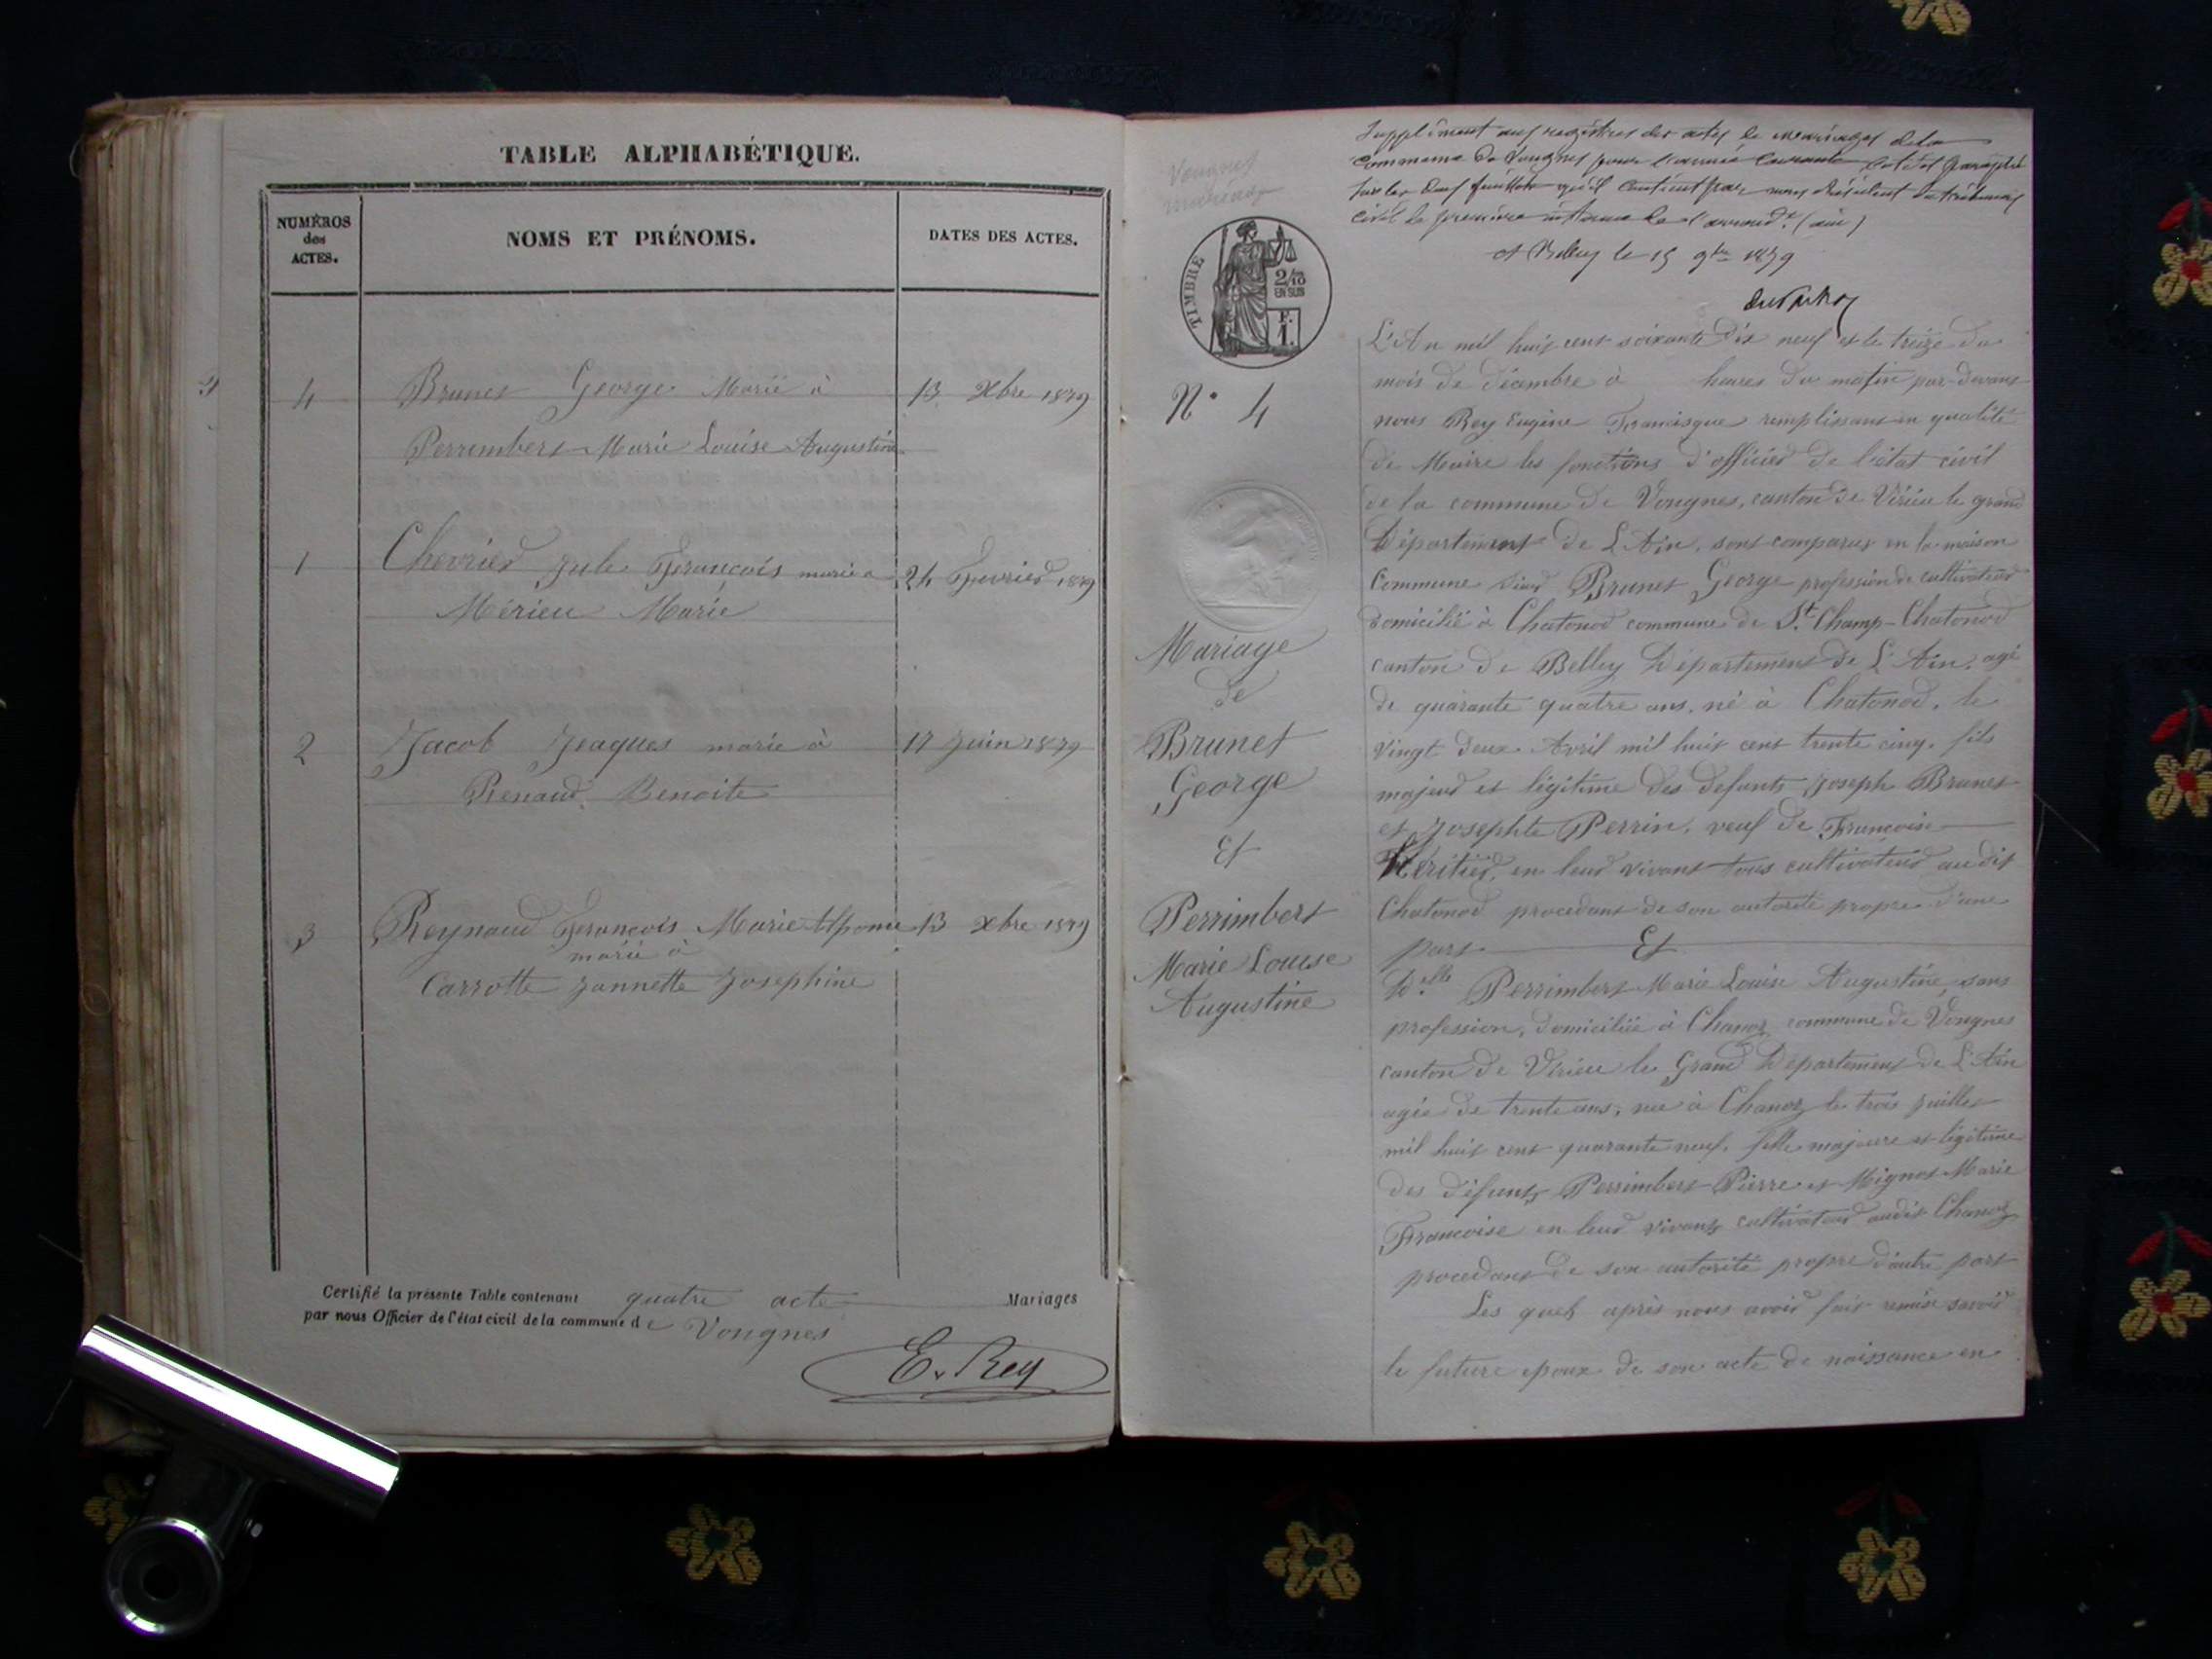 TABLE ALPHABÉTIQUE.
NUMÉROS
des
ACTES.
NOMS ET PRÉNOMS.
DATES DES ACTES.
4 Brunet George Marié à 13 Xbre 1879
Perrimbert Marie Louise Augustine
1 Chevrier Jule François marié a 24 Fevrier 1879
Mérieu Marie
2 Jacob Jeaques marié à 17 Juin 1879
Renaud Benoite
3 Reynaud François Marie Alfonse 13 Xbre 1879
marié à
Carrotte Jannette Josephine
Certifié la présente Table contenant quatre acte Mariages
par nous Officier de l'état civil de la commune de Vongnes
E. Rey
Supplément aux registres des actes de mariages de la
commune de Vongnes pour l'année courante, coté et paraphé
sur les deux feuillets qu'il contient par nous président du tribunal
civil de première instance de l'arrond.t (ain)
A Belley le 15 9bre 1879
TIMBRE
2/10
EN SUS
F.
1.
N° 4
Mariage
de
Brunet
George
Et
Perrimbert
Marie Louise
Augustine
L'An mil huit cent soixante dix neuf et le treize du
mois de décembre à heures du matin par-devant
nous Rey Eugène Francisque remplissant en qualité
de Maire les fonctions d'officier de l'état civil
de la commune de Vongnes, canton de Virieu le grand
Département de L'Ain, sont comparus en la maison
Commune Sieur Brunet George profession de cultivateur
domicilié à Chatonod commune de St. Champ-Chatonod
canton de Belley Département de L'Ain, agé
de quarante quatre ans, né à Chatonod, le
vingt deux Avril mil huit cent trente cinq, fils
majeur et légitime des defunts Joseph Brunet
et Josephte Perrin, veuf de Françoise
Héritier, en leur vivant tous cultivateur audit
Chatonod procedant de son autorité propre d'une
part Et
D.elle Perrimbert Marie Louise Augustine, sans
profession, domiciliée à Chanoz commune de Vongnes
canton de Virieu le Grand Département de L'Ain
agée de trente ans, née à Chanoz le trois juillet
mil huit cent quarante neuf, fille majeure et légitime
des défunts Perrimbert Pierre et Mignot Marie
Françoise en leur vivant cultivateur audit Chanoz
procedant de son autorité propre d'autre part
Les quels après nous avoir fait remise savoir
le future epoux de son acte de naissance en